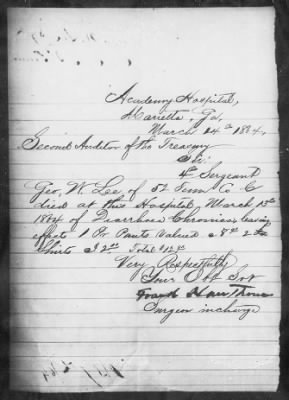 Academy Hospital,
Marietta, Ga,
March 24th 1864,
Second Auditor of the Treasury
Sir:
4th Sergeant
Geo. W. Lee of 52 Tenn Co C
died at this Hospital, March 13th
1864 of Diarrhoea Chronica, leaving
effects 1 Pr. Pants valued $8.00 2
Shirts $2.00 Total
Very Respectfully
Your Obt Svt
Frank Hawthorn
Surgeon in charge